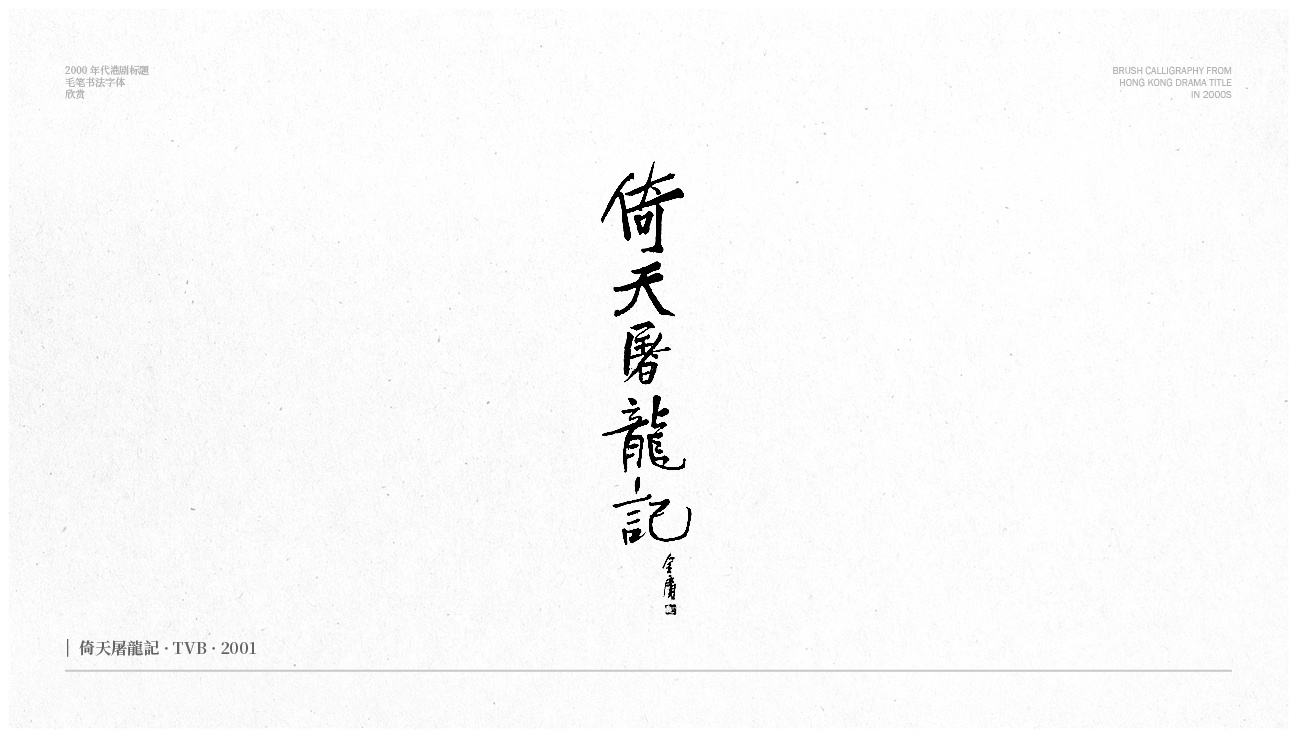 2000 年代港剧标题
毛笔书法字体
欣赏
BRUSH CALLIGRAPHY FROM
HONG KONG DRAMA TITLE
IN 2000S
倚天屠龍記
金庸
倚天屠龍記 · TVB · 2001